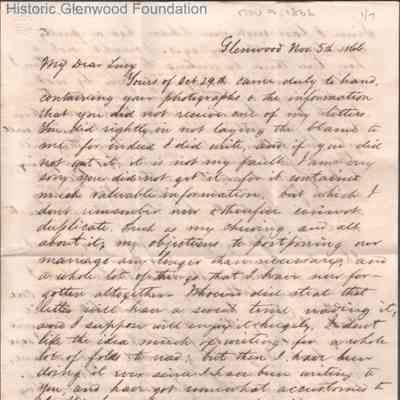 Historic Glenwood Foundation
1/7
Glenwood Nov. 5th 1866
My Dear Lucy
Yours of Oct 29th came duly to hand,
containing your photographs & the information
that you did not receive one of my letters
You did rightly in not laying the blame to
me for indeed I did write, and if you did
not get it, it is not my fault. I am very
sorry you did not get it for it contained
much valuable information, but which I
dont remember now & therefore cannot
duplicate. Such as my and all
about it; my objections to postponing our
marriage any longer than necessary; and
a whole lot of things that I have now for-
gotten altogether. Whoever did steal that
letter will have a sweet time reading it,
and I suppose will enjoy it hugely. I dont
like the idea much of writing for a whole
lot of folks to read; but then I have been
doing it ever since I have been writing to
you, and have got somewhat accustomed to